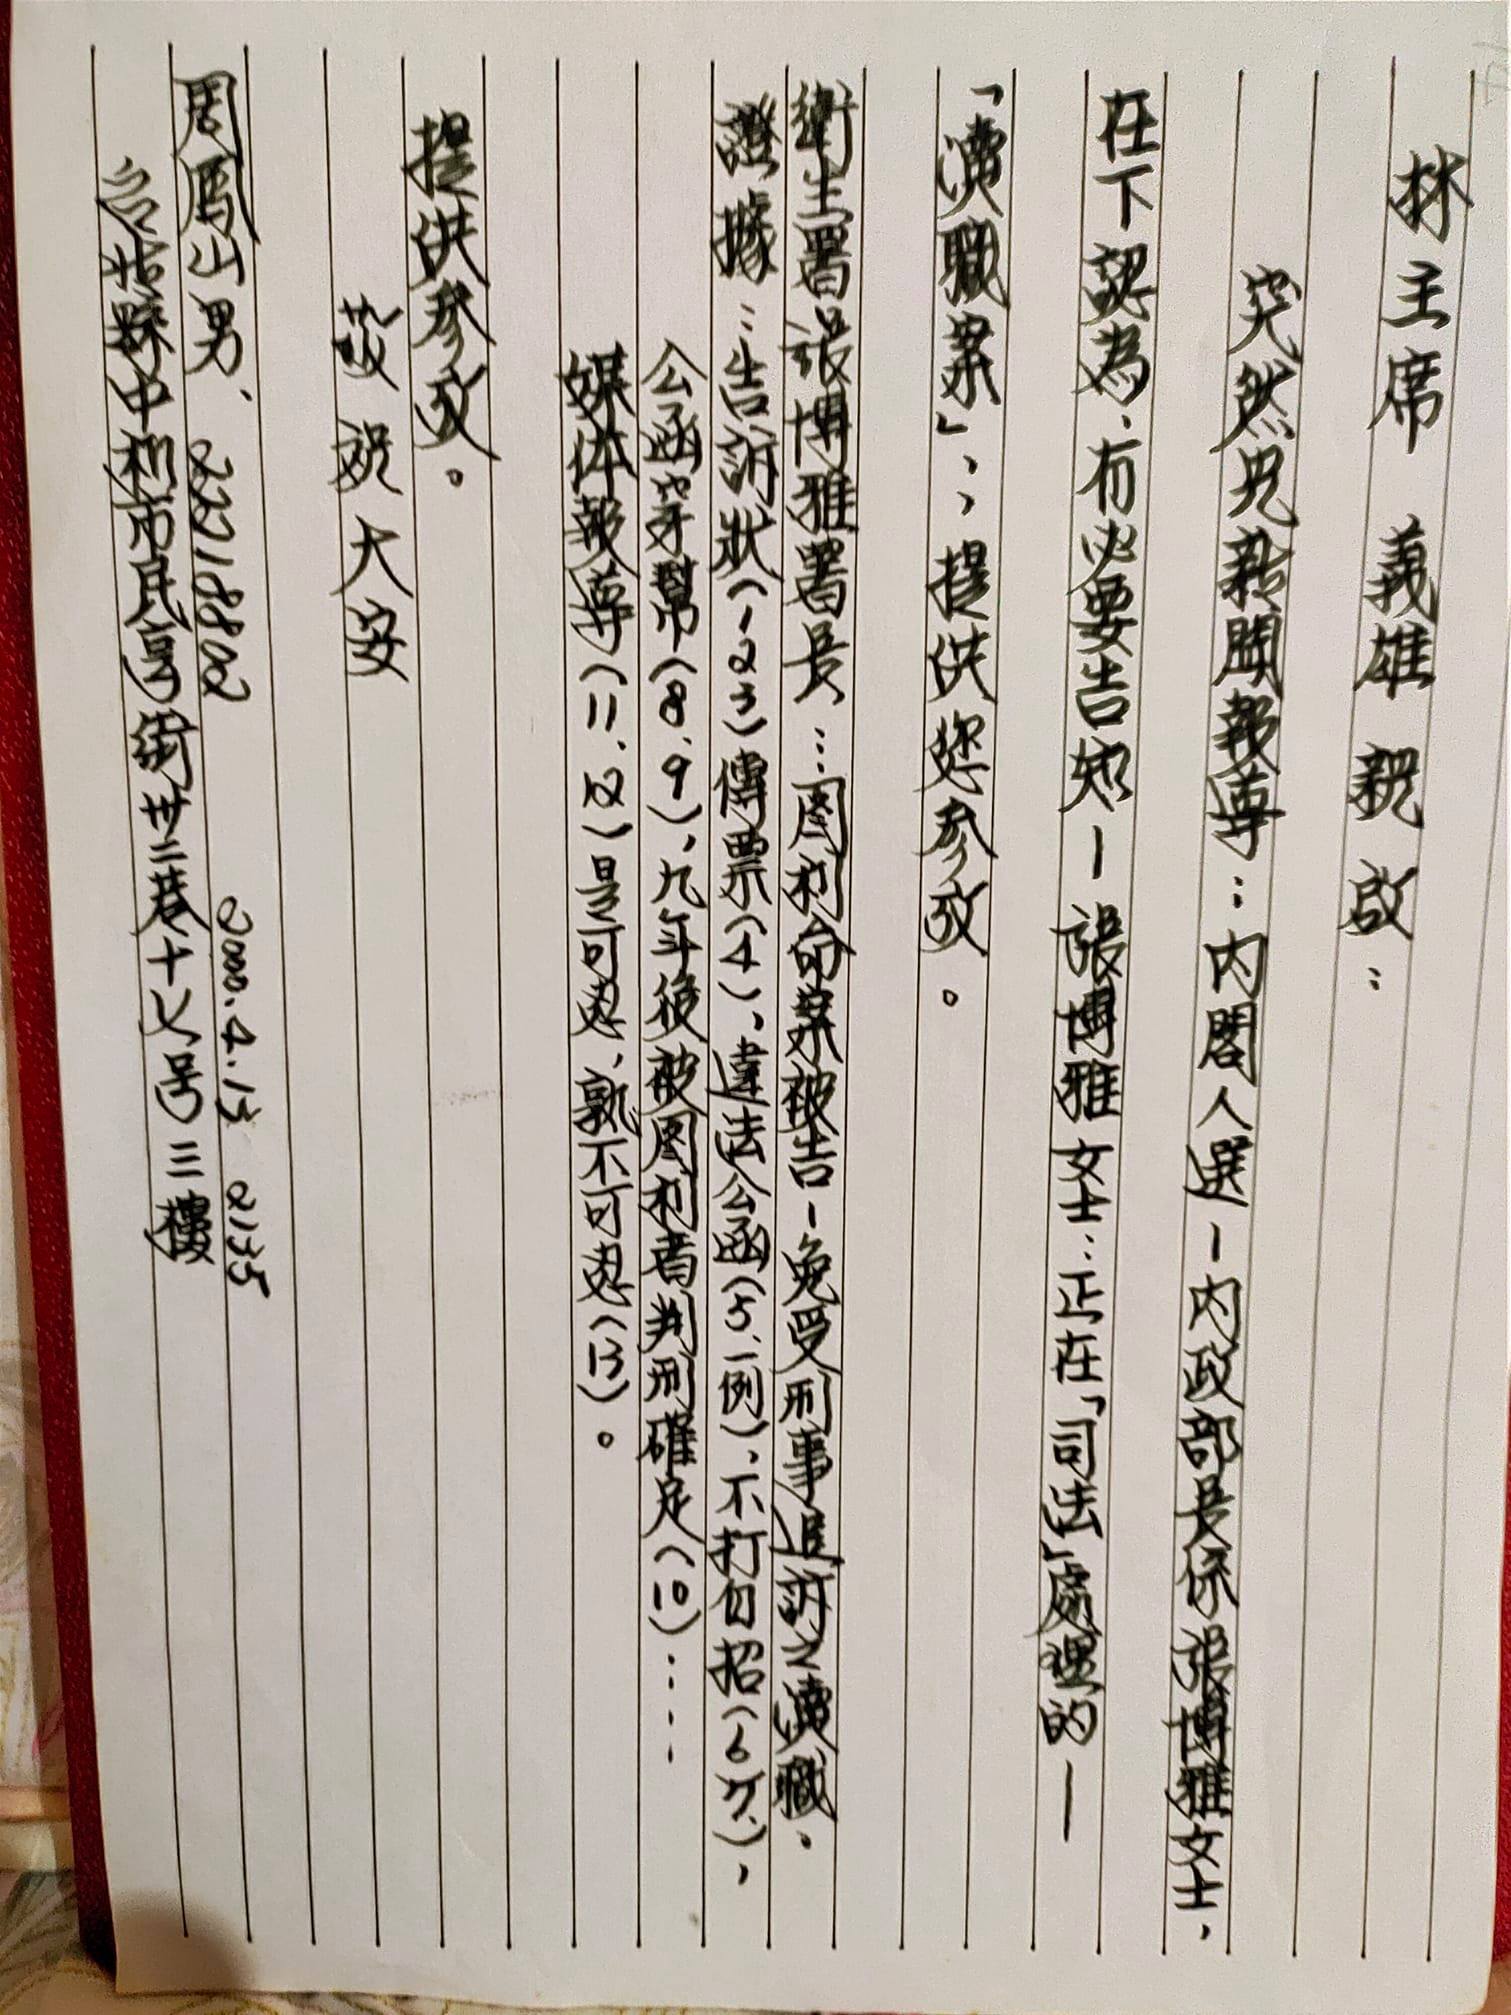 林主席 義雄 親啟：
突然見新聞報導：內閣人選－內政部長係張博雅女士，
在下認為，有必要告知－張博雅女士：正在「司法」處理的－
「瀆職案」，；提供您參攷。
衛生署張博雅署長…圖利 案被告－免受刑事追訴之瀆職．
證據：告訴狀(123)傳票(4)，違法公函(5.一例)，不打自招(67.)，
公函穿幫(8.9)，九年後被圖利者判刑確定(10)……
媒体報導(11.12)是可忍，孰不可忍(13)。
提供參攷。
敬祝大安
周鳳山男． 22218802 2000.4.13 2135
台北縣中和市民享街卅二巷十七号三樓